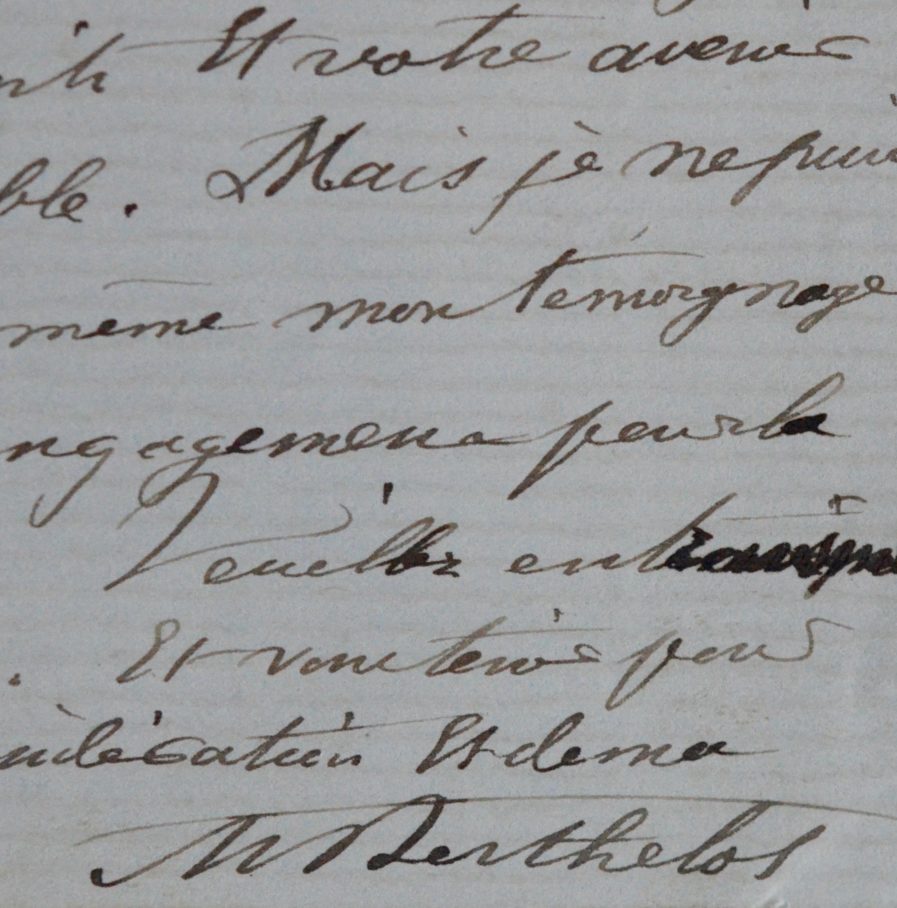 Et votre avenir
ble. Mais je ne puis
même mon témoignage
ngagement pour la
Veuillez en
. Et vous tenir pour
sidération Et de ma
M Berthelot